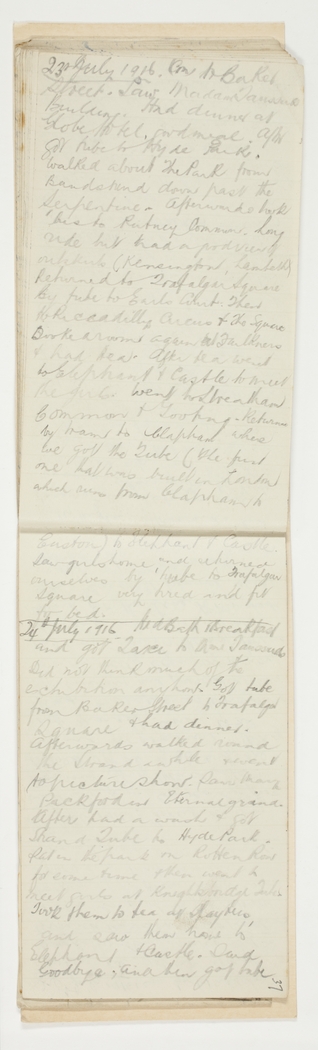 23rd July 1916. Ran to Baker
Street. Saw Madam Tausauds
building. Had dinner at
Globe Hotel. good meal. After
got tube to Hyde Park.
walked about the Park from
Bandstand down past the
Serpentine. Afterwards took
'Bus to Putney Common. Long
ride but had a good view of
outskirts (Kensington, Lambeth)
Returned to Trafalgar Square
by tube to Earls Court. Then
to Piccadilly Circus & the Square
Booked rooms again at Faulkners
& had tea. After tea went
to Elephant & Castle to meet
the girls. Went to Streatham
Common & Tooting. Returned
by tram to Clapham where
we got the Tube (the first
one that was built in London
which runs from Clapham to
Euston) to Elephant & Castle.
Saw girls home and returned
ourselves by tube to Trafalgar
Square very tired and fit
for bed.
24th July 1916. Had Bath & breakfast
and got Taxi to Mme Tausauds
Did not think much of the
exhibition anyhow. Got tube
from Baker Street to Trafalgar
Square & had dinner.
Afterwards walked round
the Strand awhile & went
to picture show. Saw Mary
Pickford in Eternal grind.
After had a wash & got
Strand Tube to Hyde Park.
Sat in the park on Rotten Row
for some time then went to
meet girls at Knightsbridge Tube
Took them to tea at
and saw them home to
Elephant & Castle. Said
Goodbye, and then got tube